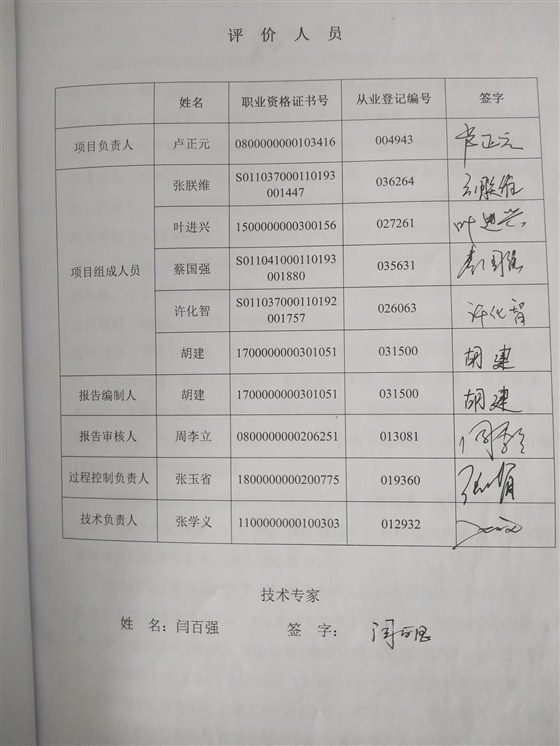 评 价 人 员
姓名 职业资格证书号 从业登记编号 签字
项目负责人 卢正元 0800000000103416 004943 卢正元
项目组成人员
张朕维 S011037000110193001447 036264 张朕维
叶进兴 1500000000300156 027261 叶进兴
蔡国强 S011041000110193001880 035631
许化智 S011037000110192001757 026063 许化智
胡建 1700000000301051 031500 胡建
报告编制人 胡建 1700000000301051 031500 胡建
报告审核人 周李立 0800000000206251 013081
过程控制负责人 张玉省 1800000000200775 019360
技术负责人 张学义 1100000000100303 012932
技术专家
姓 名：闫百强 签 字：